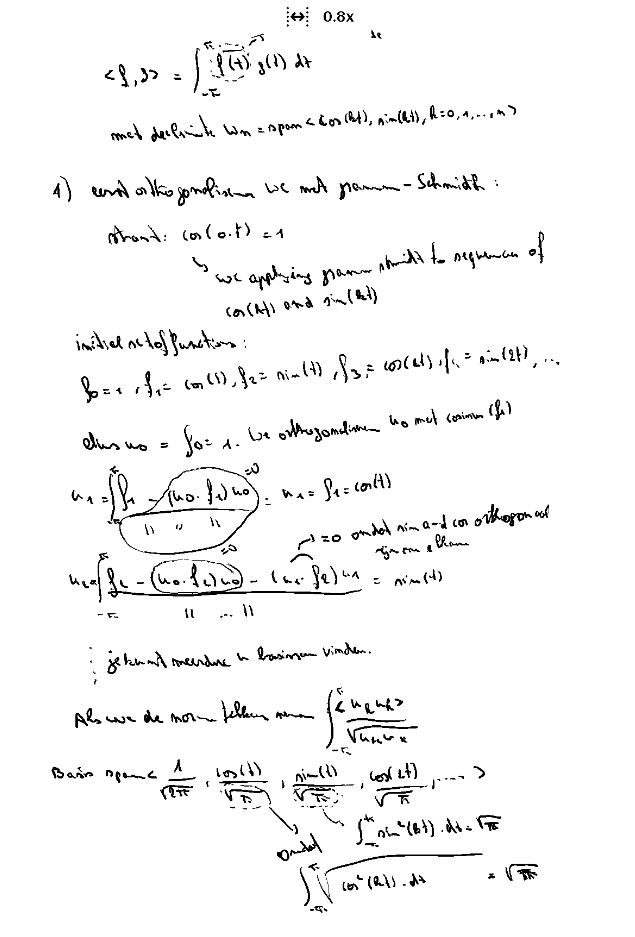 0.8x
de
<f,g> = ∫_{-π}^{π} \overline{f(t)} g(t) dt
met deelruimte Wn = span < cos(kt), sin(kt), k=0,1,...,n >
1) eerst orthogonaliseren we met gramm-Schmidt:
start: cos(0.t) = 1
↳ we applying gramm shmidt to sequences of
cos(kt) and sin(kt)
initial set of functions:
f0 = 1, f1 = cos(t), f2 = sin(t), f3 = cos(2t), f4 = sin(2t), ...
dus u0 = f0 = 1. We orthogonaliseren u0 met cosinus (f1)
=0
u1 = ∫_{-π}^{π} f1 - (u0.f1)u0 = u1 = f1 = cos(t)
" " "
→ =0 omdat sin and cos orthogonaal
zijn aan elkaar
=0
u2 = ∫_{-π}^{π} f2 - (u0.f2)u0 - (u1.f2)u1 = sin(t)
" ... "
je kunt meerdere u basissen vinden.
Als we de norm telkens nemen ∫_{-π}^{π} <uk uk> / √uk uk
Basis span < 1/√2π, cos(t)/√π, sin(t)/√π, cos(2t)/√π, .... >
∫_{-π}^{π} sin²(kt).dt = √π
omdat
∫_{-π}^{π} √cos²(kt).dt = √π